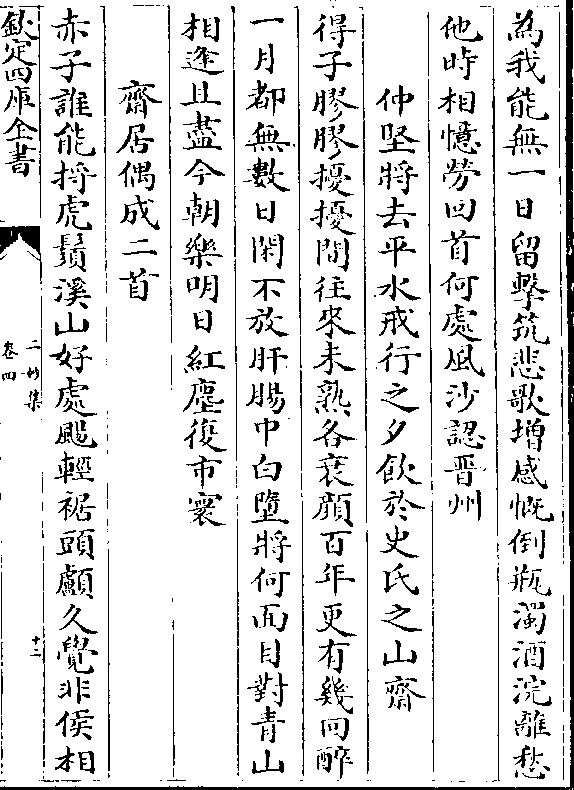 為我能無一日留擊筑悲歌增感慨倒瓶濁酒浣離愁
他時相憶勞回首何處風沙認晉州
仲堅將去平水戒行之夕飲於史氏之山齋
得子膠膠擾擾間往來未熟各衰顔百年更有幾回醉
一月都無數日閑不放肝腸中白墮將何面目對青山
相逢且盡今朝樂明日紅塵復市寰
齋居偶成二首
赤子誰能捋虎鬚溪山好處颺輕裾頭顱久覺非侯相
欽定四庫全書
二妙集
卷四
十二